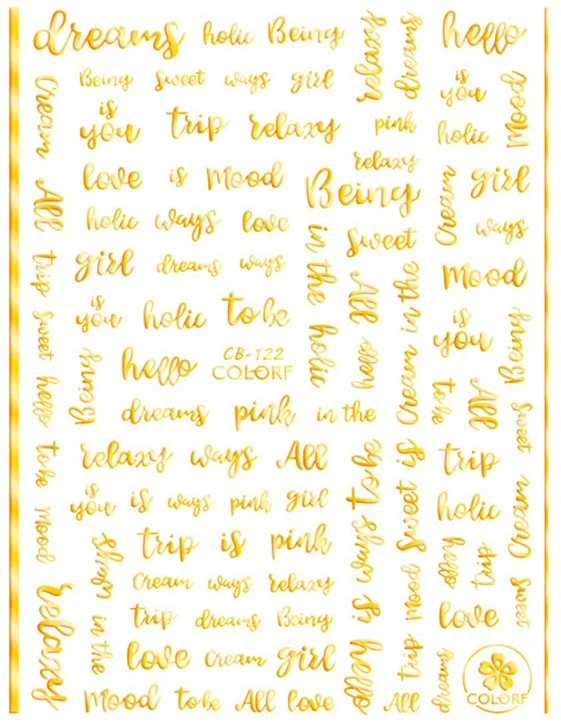 dreams holic Being
relaxy
dreams
hello
Being sweet ways girl
is you
Mood
Cream
is you trip relaxy pink
holic
relaxy
love is Mood
Being
Cream
girl
All
holic ways love
in the
Sweet
ways
trip
girl dreams ways
All
in the
Mood
is you holic to be
sweet
holic
hello
Cream
is you
Being
hello CB-122
COLORF
Being
hello
dreams pink in the
to be
All
sweet
to be
relaxy ways All
to be
is
trip
Mood
is you is ways pink girl
ways
Sweet
holic
Cream
ways
trip is pink
is
Mood
hello
trip
Cream ways relaxy
sweet
relaxy
in the
trip dreams Being
hello
trip
love
love Cream girl
dreams
COLORF
Mood to be All love
All